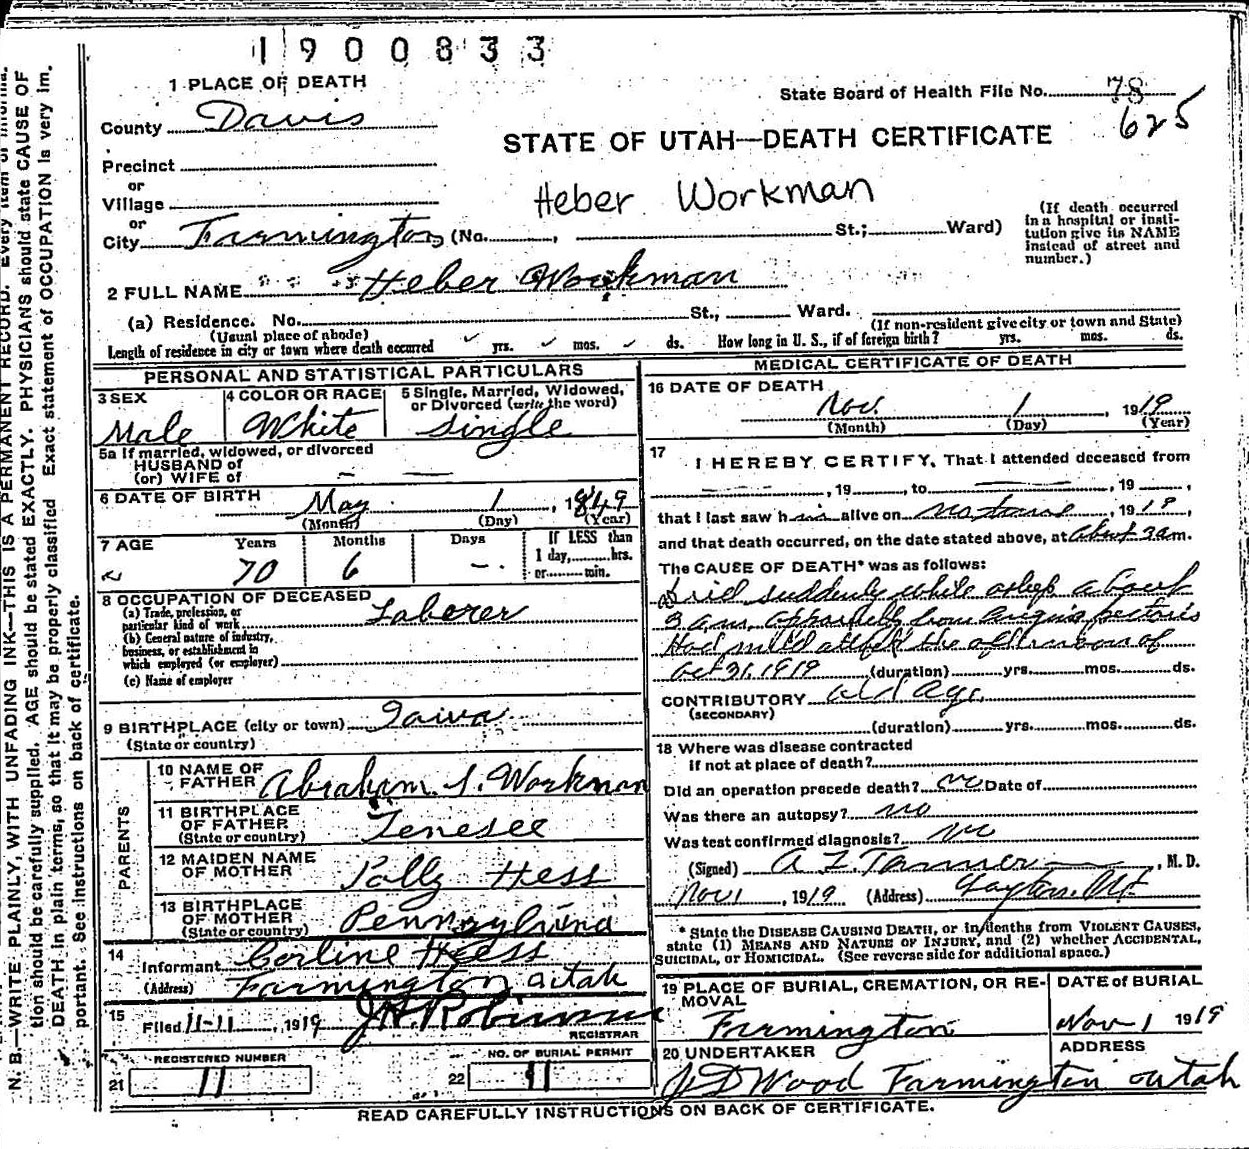 1900833
1 PLACE OF DEATH
State Board of Health File No. 78
625
County Davis
STATE OF UTAH—DEATH CERTIFICATE
Precinct
or
Village
Heber Workman
or
City Farmington (No. , St.; Ward)
(If death occurred
in a hospital or insti-
tution give its NAME
instead of street and
number.)
2 FULL NAME Heber Workman
(a) Residence. No. St., Ward.
(Usual place of abode)
(If non-resident give city or town and State)
Length of residence in city or town where death occurred yrs. mos. ds. How long in U. S., if of foreign birth? yrs. mos. ds.
PERSONAL AND STATISTICAL PARTICULARS
3 SEX
Male
4 COLOR OR RACE
White
5 Single, Married, Widowed,
or Divorced (write the word)
Single
5a If married, widowed, or divorced
HUSBAND of
(or) WIFE of — —
6 DATE OF BIRTH May 1, 1849
(Month) (Day) (Year)
7 AGE Years Months Days If LESS than
1 day, hrs.
70 6 — or min.
8 OCCUPATION OF DECEASED
(a) Trade, profession, or
particular kind of work Laborer
(b) General nature of industry,
business, or establishment in
which employed (or employer)
(c) Name of employer
9 BIRTHPLACE (city or town) Iaiva
(State or country)
PARENTS
10 NAME OF
FATHER Abraham S. Workman
11 BIRTHPLACE
OF FATHER
(State or country) Tenesee
12 MAIDEN NAME
OF MOTHER Polly Hess
13 BIRTHPLACE
OF MOTHER
(State or country) Pennsylvina
14
Informant Corline Heess
(Address) Farmington Utah
15
Filed 11-11, 1919 J H Robinson
REGISTRAR
REGISTERED NUMBER
21 11
NO. OF BURIAL PERMIT
22 11
MEDICAL CERTIFICATE OF DEATH
16 DATE OF DEATH
Nov. 1, 1919
(Month) (Day) (Year)
17
I HEREBY CERTIFY, That I attended deceased from
, 19 , to , 19 ,
that I last saw him alive on , 1919,
and that death occurred, on the date stated above, at about 3 am.
The CAUSE OF DEATH* was as follows:
Died suddenly while asleep about
3 a.m. apparently from angina pectoris
Had mild attack the afternoon of
Oct 31, 1919 (duration) yrs. mos. ds.
CONTRIBUTORY old Age
(SECONDARY)
(duration) yrs. mos. ds.
18 Where was disease contracted
if not at place of death?
Did an operation precede death? no Date of
Was there an autopsy? no
Was test confirmed diagnosis? no
(Signed) A. L. Tanner, M. D.
Nov 1, 1919 (Address) Layton, Ut.
* State the DISEASE CAUSING DEATH, or in deaths from VIOLENT CAUSES,
state (1) MEANS AND NATURE OF INJURY, and (2) whether ACCIDENTAL,
SUICIDAL, or HOMICIDAL. (See reverse side for additional space.)
19 PLACE OF BURIAL, CREMATION, OR RE-
MOVAL
Farmington
DATE OF BURIAL
Nov 1 1919
20 UNDERTAKER
ADDRESS
J D Wood Farmington Utah
READ CAREFULLY INSTRUCTIONS ON BACK OF CERTIFICATE.
N. B.—WRITE PLAINLY, WITH UNFADING INK—THIS IS A PERMANENT RECORD. Every item of informa-
tion should be carefully supplied. AGE should be stated EXACTLY. PHYSICIANS should state CAUSE OF
DEATH in plain terms, so that it may be properly classified. Exact statement of OCCUPATION is very im-
portant. See instructions on back of certificate.